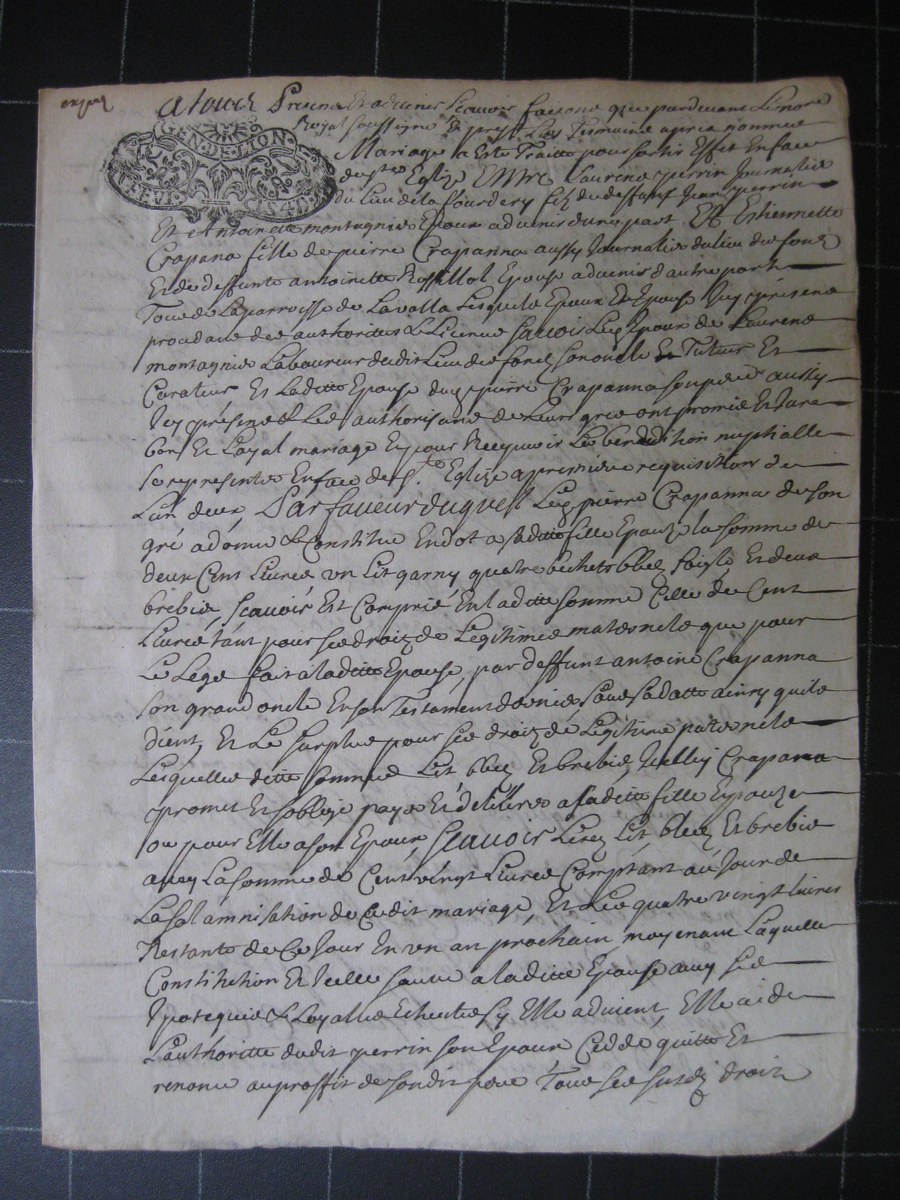 A tous Presens et advenir scavoir faisons que pardevant le no.re
GEN.DE.LION.
Royal soussigne et presents les tesmoins apres nommes
Mariage a este traitte pour sortir effet en face
de s.te Eglise Entre Laurens perrin Journalie
du lieu de la fourdery filz de deffunt Jean perrin
Et Antoinette montagnie Epoux advenir d'une part. Et Estiennette
Crapana fille de pierre Crapanna aussy Journalie du lieu du
Et de deffunte antoinette Rossillol Epouse advenir d'autre part
Tous de la parroisse de Lavalla Lesquels Epoux Et Epouse Icy presens
procedant des authorites Et Licence scavoir led. Epoux de Laurens
montagnie Laboureur dudit lieu de son oncle Et Tuteur Et
Curateur Et Laditte Epouse dud. pierre Crapanna son pere aussy
Icy present Et les authorisant de leurs gres ont promis Et Jure
bon Et Loyal mariage Et pour Recepvoir La benediction nuptialle
se representer En face de s.te Eglise a premiere requisition de
Lun deux, Par faveur duquel Led. pierre Crapanna de son
gré a donne Et Constitue En dot a saditte fille Epouze la somme de
deux Cent Livres un Lit garny quatre bichets bled seigle Et deux
brebis, scavoir Est Compris En laditte somme Celle de Cent
Livres tant pour ses droitz de Legitime maternele que pour
Le Legs fait à laditte Epouse, par deffunt antoine Crapanna
son grand oncle En son Testament dernier sous sa datte ainsy quils
dient, Et Le surplus pour ses droitz de Legitime paternele
Lesquelles ditte somme Lit bled Et brebis Icelluy Crapanna
promet Et soblige payer Et delivrer a saditte fille Epouze
ou pour Elle a son Epoux, Scavoir Lesd. Lit, bled Et brebis
avec La somme de Cent vingt Livres Comptant au Jour de
La solamnisation de Cedit mariage, Et Les quatre vingt livres
Restante de Ce Jour En un an prochain moyenant Laquelle
Constitution Et Icelle sauve a laditte Epouse avec ses
Ipoteques Et Loyalles Echeutes sy Elle advient, Elle aide
L'authoritte dudit perrin son Epoux Cedde quitte Et
renonce au proffit de sondit pere Tous ses susd. droitz